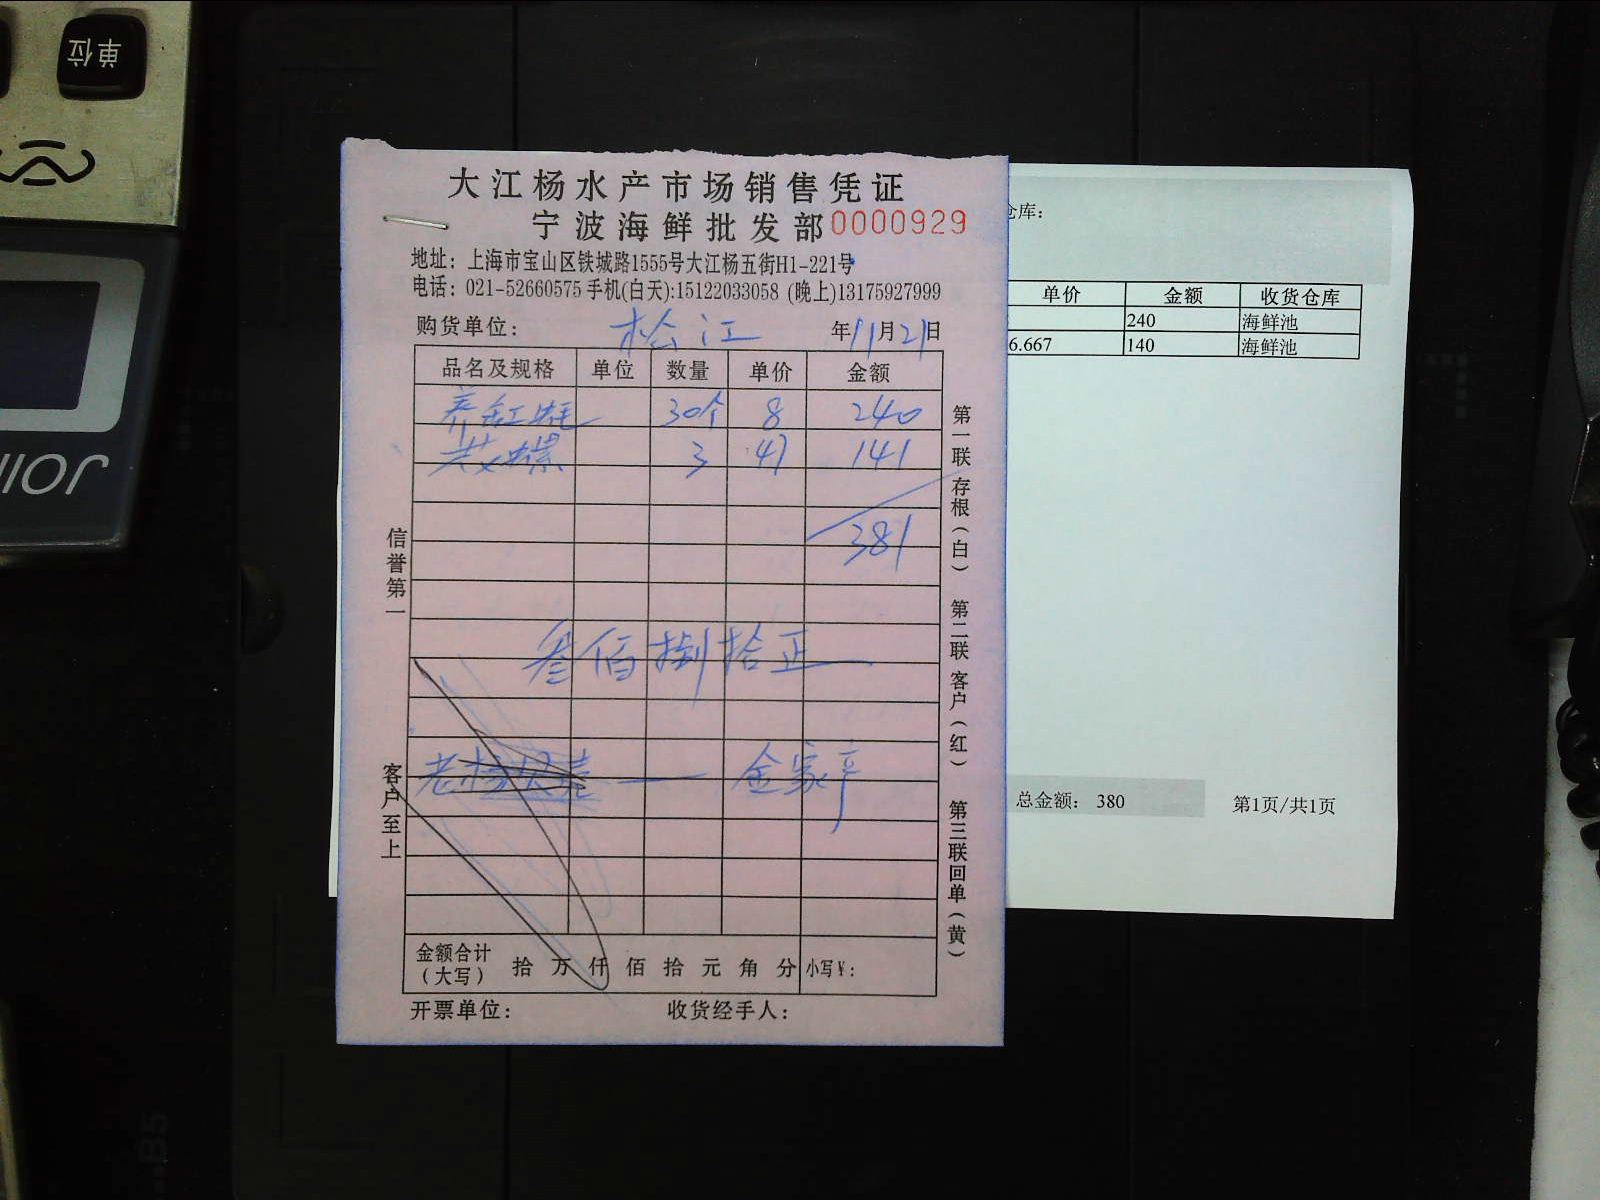 单位
大江杨水产市场销售凭证
宁波海鲜批发部0000929
地址：上海市宝山区铁城路1555号大江杨五街H1-221号
电话：021-52660575 手机(白天):15122033058 (晚上)13175927999
购货单位： 松江 年11月21日
品名及规格 单位 数量 单价 金额
30个 8 240
3 47 141
381
叁佰捌拾正
老杨 金家
金额合计（大写） 拾 万 仟 佰 拾 元 角 分 小写￥：
开票单位： 收货经手人：
信誉第一
客户至上
第一联 存根（白） 第二联 客户（红） 第三联 回单（黄）
仓库：
单价 金额 收货仓库
240 海鲜池
6.667 140 海鲜池
总金额： 380 第1页/共1页
B5